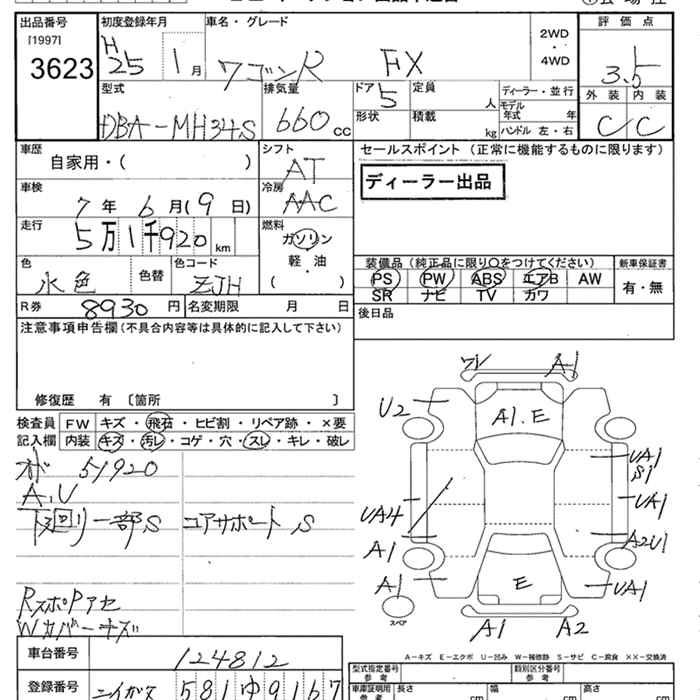 出品番号
[1997]
3623
初度登録年月
H 25 1 月
車名・グレード
ワゴンR FX
2WD
・
4WD
評価点
3.5
外装 内装
C C
型式
DBA-MH34S
排気量
660 cc
ドア 5
定員 人
形状
積載 kg
ディーラー・並行
モデル年式 年
ハンドル 左・右
車歴
自家用・( )
シフト
AT
車検
7 年 6 月(9 日)
冷房
AAC
走行
5万1千920 km
燃料
ガソリン
軽・油
( )
色
水色
色替
色コード
ZJH
R券 8930 円
名変期限 月 日
セールスポイント(正常に機能するものに限ります)
ディーラー出品
装備品(純正品に限り○をつけてください)
PS PW ABS エアB AW
SR ナビ TV カワ
新車保証書
有・無
後日品
注意事項申告欄(不具合内容等は具体的に記入して下さい)
修復歴 有 〔箇所 〕
検査員
記入欄
FW キズ・飛石・ヒビ割・リペア跡・×要
内装 キズ・汚レ・コゲ・穴・スレ・キレ・破レ
オド 51920
A.U
下回り一部S コアサポートS
RスポPアセ
Wカバーキズ
車台番号
124812
登録番号
581 ゆ 9167
ワレ A1
U2
A1.E
UA1
S1
UA1
UA4
A2U1
A1
A1
UA1
E
スペア
A1 A2
A-キズ E-エクボ U-凹み W-補修跡 S-サビ C-腐食 ××-交換済
型式指定番号
参考
類別区分番号
車庫証明用
参考
長さ cm
幅 cm
高さ cm